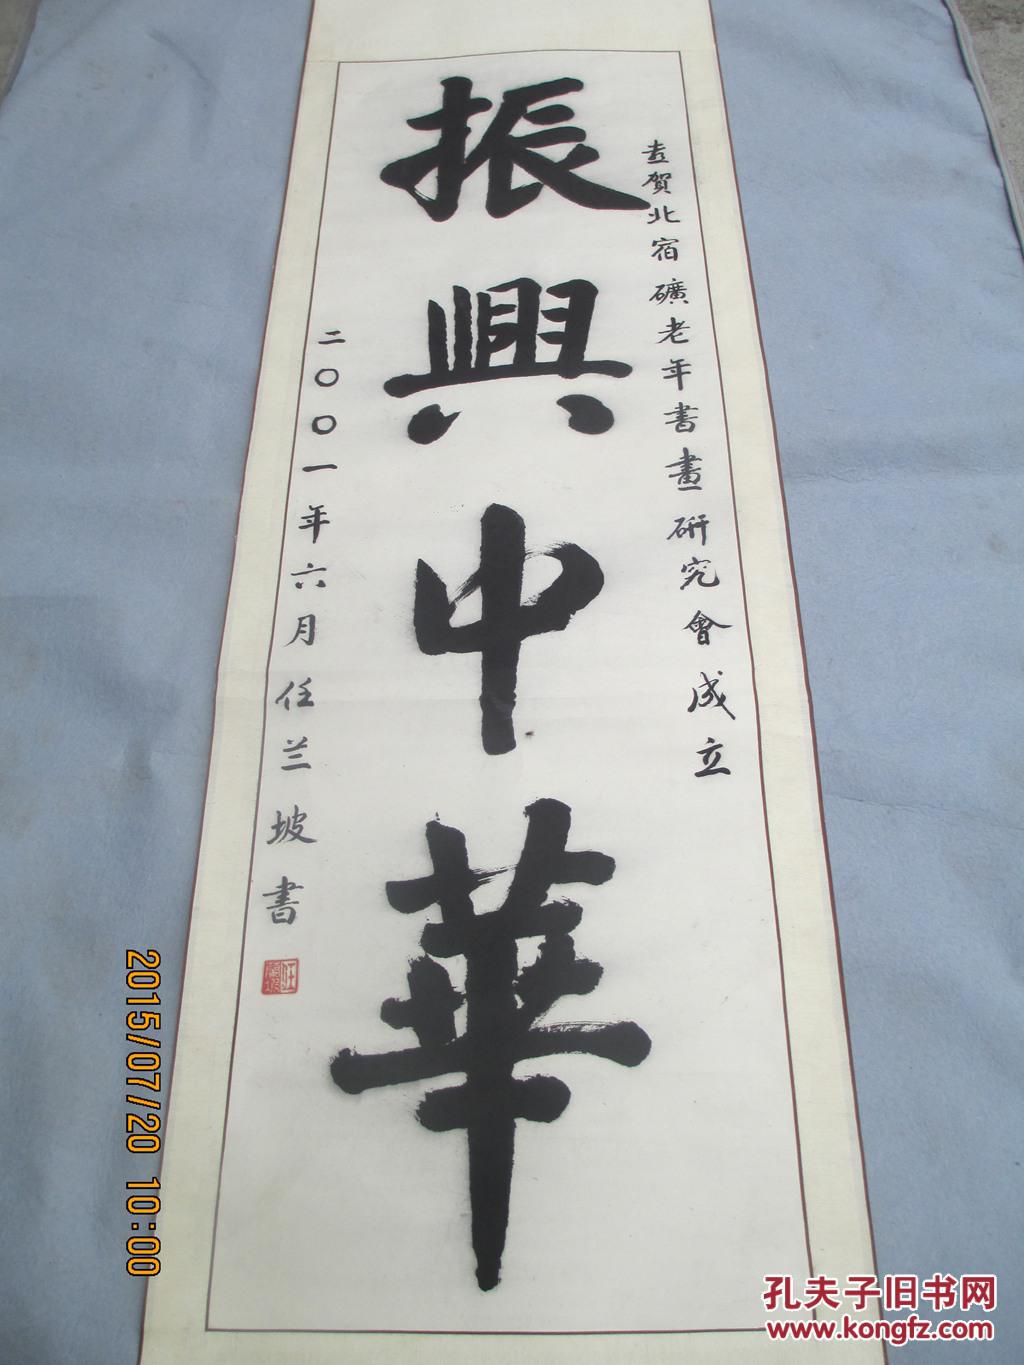 賀北宿礦老年書畫研究會成立
振興中華
二〇〇一年六月任兰坡書
2015/07/20 10:00
孔夫子旧书网
www.kongfz.com